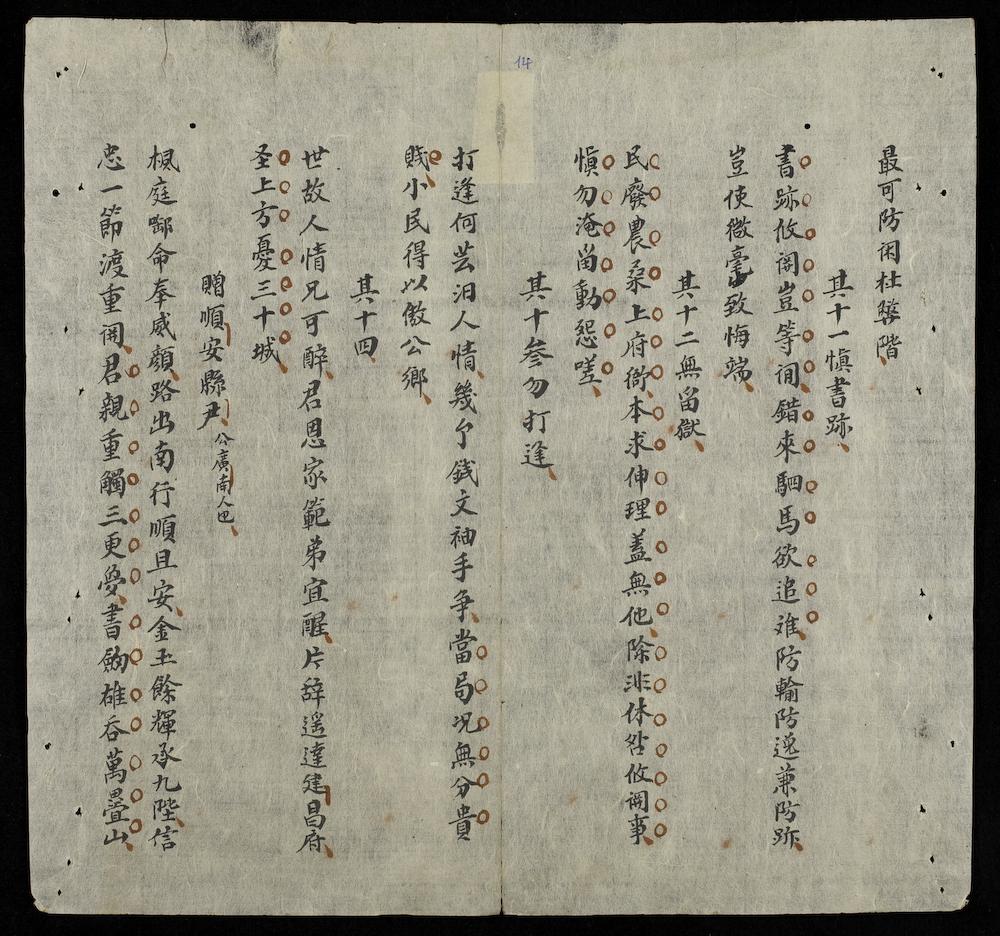 14
最可防闲杜弊階
其十一慎書跡
書跡攸関豈等闲錯來駟馬欲追难防輸防逸兼防跡
豈使微毫致悔端
其十二無留獄
民廢農桒上府衙本求伸理蓋無他除非休咎攸関事
慎勿淹畄動怨嗟
其十叁勿打逢
打逢何芸汨人情幾个銭文袖手争當局况無分貴
賎小民得以傲公鄉
其十四
世故人情兄可醉君恩家範弟宜醒片辞遥達建昌府
圣上方憂三十城
贈順安縣尹 公廣南人也
楓庭啣命奉威顔路出南行順且安金玉餘輝承九陛信
忠一節渡重関君親重觸三更夢書劒雄吞萬疊山